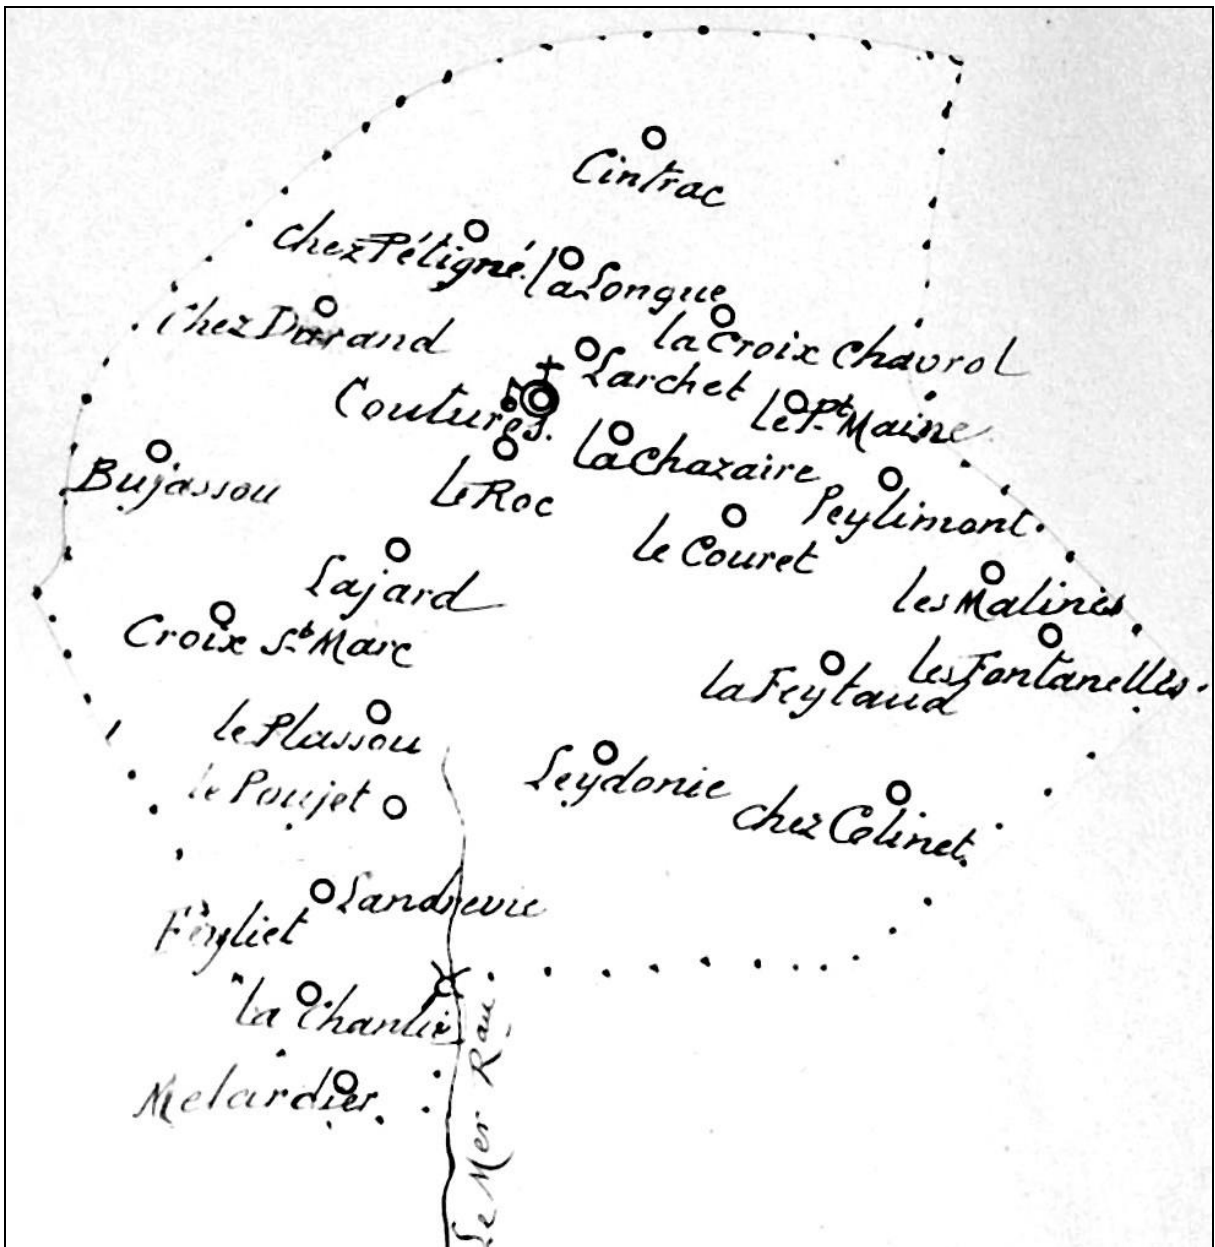 Cintrac
chez Pétigné.
la Longue
chez Durand
la Croix Chavrol
Larchet
le Pt Maine
Coutures.
la Chazaire
Bujassou
le Roc
Peylimont.
le Couret
Lajard
les Malines
Croix St Marc
les Fontanelles.
la Feytaud
le Plassou
Leydonie
le Poujet
chez Celinet.
Landrevie
la Chanlie
Melardier.
Le Mer Rau.